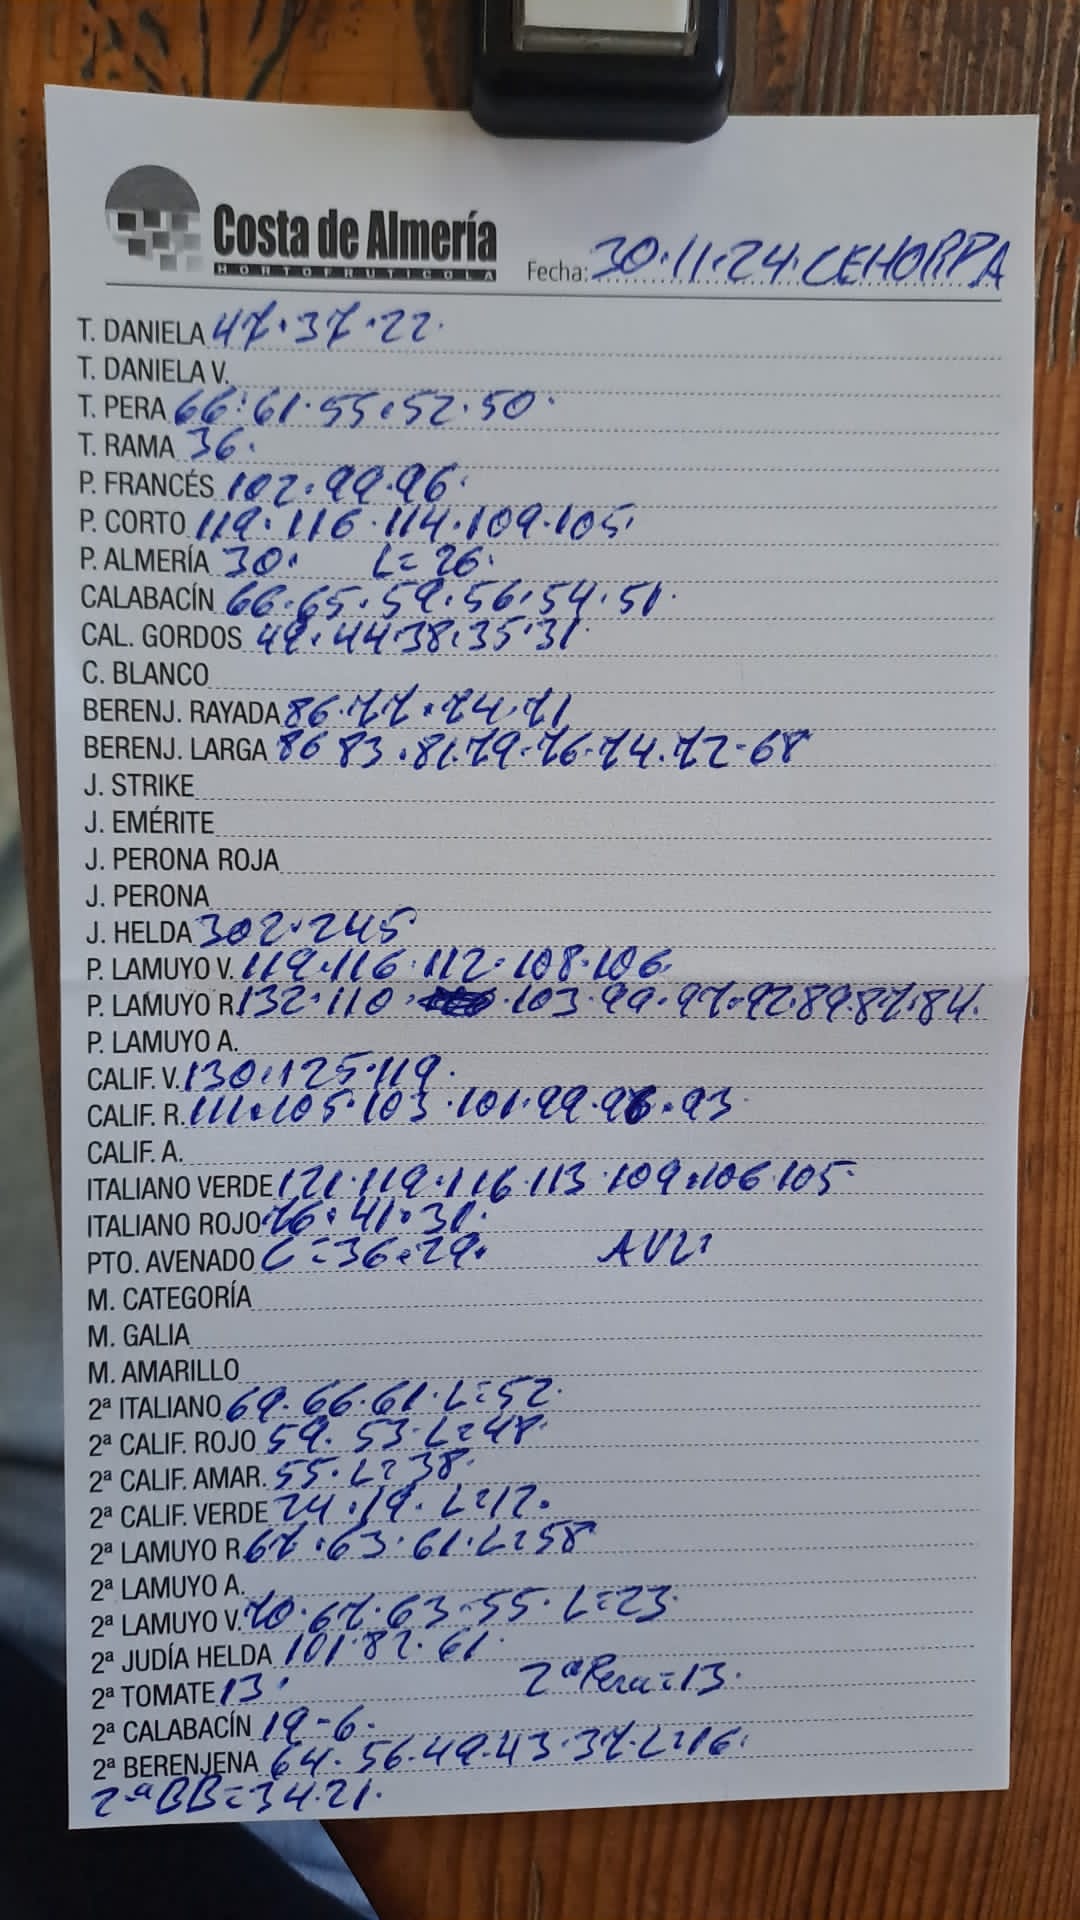 Costa de Almería
HORTOFRUTICOLA
Fecha: 30·11·24· CEHORPA
T. DANIELA 47·37·22·
T. DANIELA V.
T. PERA 66·61·55·52·50·
T. RAMA 36·
P. FRANCÉS 102·99·96·
P. CORTO 119·116·114·109·105·
P. ALMERÍA 30· L=26·
CALABACÍN 66·65·59·56·54·51·
CAL. GORDOS 49·44·38·35·31·
C. BLANCO
BERENJ. RAYADA 86·77·74·71
BERENJ. LARGA 86 83·81·79·76·74·72·68
J. STRIKE
J. EMÉRITE
J. PERONA ROJA
J. PERONA
J. HELDA 302·245·
P. LAMUYO V. 119·116·112·108·106·
P. LAMUYO R. 132·110·103·99·97·92·89·87·84·
P. LAMUYO A.
CALIF. V. 130·125·119·
CALIF. R. 111·105·103·101·99·96·93·
CALIF. A.
ITALIANO VERDE 121·119·116·113·109·106·105·
ITALIANO ROJO 76·41·31·
PTO. AVENADO C=36·29·
M. CATEGORÍA
M. GALIA
M. AMARILLO
2ª ITALIANO 69·66·61·L=52·
2ª CALIF. ROJO 59·53·L=48·
2ª CALIF. AMAR. 55·L=38·
2ª CALIF. VERDE 24·19·L=12·
2ª LAMUYO R. 67·63·61·L=58
2ª LAMUYO A.
2ª LAMUYO V. 70·67·63·55·L=23·
2ª JUDÍA HELDA 101·82·61·
2ª TOMATE 13· 2ª Pera=13·
2ª CALABACÍN 19-6·
2ª BERENJENA 64·56·49·43·37·L=16·
2ªBB=34·21·